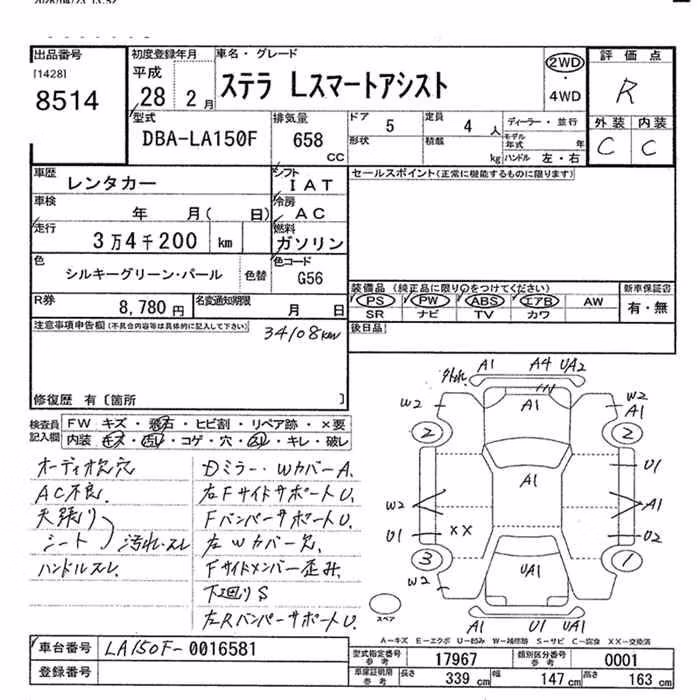 出品番号
[1428]
8514
初度登録年月
平成
28 2 月
車名・グレード
ステラ Lスマートアシスト
2WD
・
4WD
評価点
R
外装 内装
C C
型式
DBA-LA150F
排気量
658
CC
ドア
5
定員
4 人
形状
積載
kg
ディーラー・並行
モデル年式 年
ハンドル 左・右
車歴
レンタカー
シフト
IAT
セールスポイント(正常に機能するものに限ります)
車検
年 月( 日)
冷房
AC
走行
3万4千200 km
燃料
ガソリン
色
シルキーグリーン・パール
色替
色コード
G56
装備品 (純正品に限り○をつけてください)
PS PW ABS エアB AW
SR ナビ TV カワ
新車保証書
有・無
R券
8,780 円
名変通知期限
月 日
後日品
注意事項申告欄(不具合内容等は具体的に記入して下さい)
34108km
修復歴 有〔箇所 〕
検査員
記入欄
FW キズ・飛石・ヒビ割・リペア跡・×要
内装 キズ・汚れ・コゲ・穴・スレ・キレ・破レ
オーディオ欠穴
AC不良.
天張り
シート
汚れ・スレ
ハンドルスレ.
Dミラー・WカバーA.
右FサイドサポートU.
FバンパーサポートU.
左Wカバー欠.
Fサイドメンバー歪み.
下廻りS
左RバンパーサポートU.
A1 A4 UA2
外れ
W2 A1 W2
A1
2 2
A1 U1
W2 A1
U1 ×× U2
3 1
W2 UA1
A1 U1 UA1
スペア
A-キズ E-エクボ U-凹み W-補修跡 S-サビ C-腐食 XX-交換済
車台番号
LA150F-0016581
登録番号
型式指定番号
参考
17967
類別区分番号
参考
0001
車庫証明用
参考
長さ
339 cm
幅
147 cm
高さ
163 cm